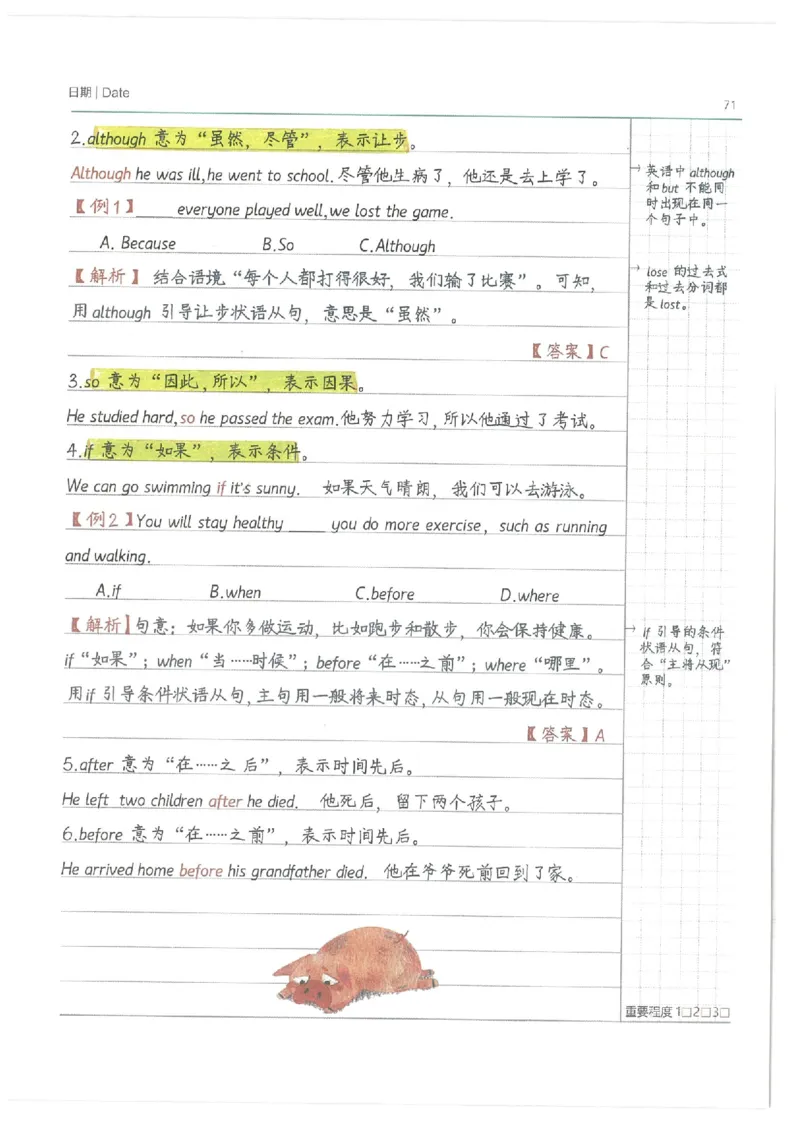 日期 | Date
71
2.although 意为“虽然，尽管”，表示让步。
Although he was ill,he went to school.尽管他生病了，他还是去上学了。
【例1】_____everyone played well,we lost the game.
A. Because B.So C.Although
【解析】结合语境“每个人都打得很好，我们输了比赛”。可知，
用although 引导让步状语从句，意思是“虽然”。
【答案】C
3.so 意为“因此，所以”，表示因果。
He studied hard,so he passed the exam.他努力学习，所以他通过了考试。
4.if 意为“如果”，表示条件。
We can go swimming if it's sunny. 如果天气晴朗，我们可以去游泳。
【例2】You will stay healthy _____ you do more exercise, such as running
and walking.
A.if B.when C.before D.where
【解析】句意：如果你多做运动，比如跑步和散步，你会保持健康。
if“如果”；when“当……时候”；before“在……之前”；where“哪里”。
用if 引导条件状语从句，主句用一般将来时态，从句用一般现在时态。
【答案】A
5.after 意为“在……之 后”，表示时间先后。
He left two children after he died. 他死后，留下两个孩子。
6.before 意为“在……之前”，表示时间先后。
He arrived home before his grandfather died. 他在爷爷死前回到了家。
→ 英语中 although
和but 不能同
时出现在同一
个句子中。
→ lose 的过去式
和过去分词都
是 lost。
→ if 引导的条件
状语从句，符
合“主将从现”
原则。
重要程度 1□2□3□